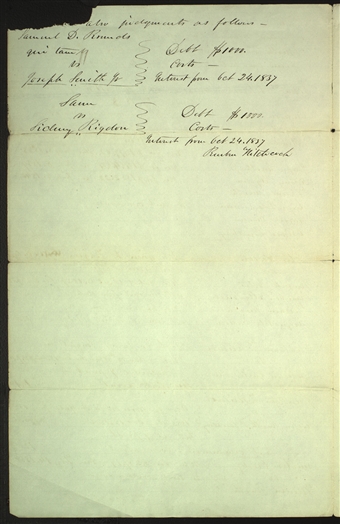 also judgments as follows —
Samuel D. Rounds
qui tam
vs
Joseph Smith Jr
Debt $1000.
Costs —
Interest from Oct 24. 1837
Same
vs
Sidney Rigdon
Debt $1000.
Costs —
Interest from Oct 24. 1837
Reuben Hitchcock